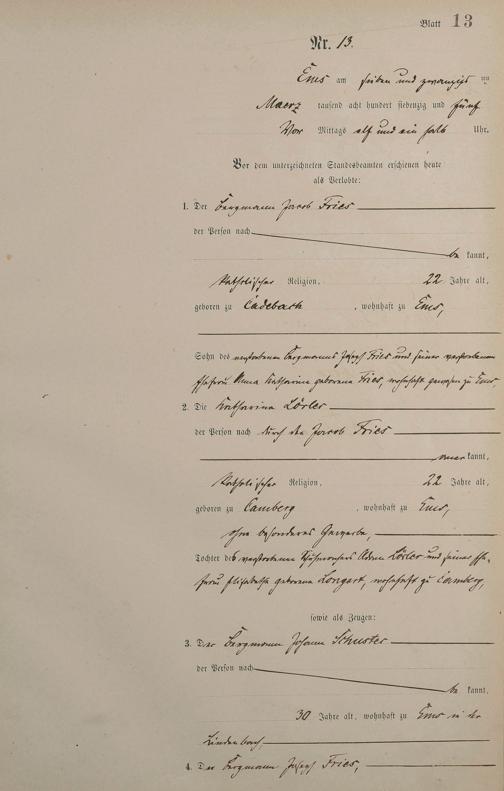 Blatt 13
Nr. 13.
Ems am sieben und zwanzigs ten
Maerz tausend acht hundert siebenzig und fünf
Vor Mittags elf und ein halb Uhr.
Vor dem unterzeichneten Standesbeamten erschienen heute
als Verlobte:
1. Der Bergmann Jacob Fries
der Person nach
be kannt,
katholischer Religion, 22 Jahre alt,
geboren zu Cadebach, wohnhaft zu Ems,
Sohn des verstorbenen Bergmanns Joseph Fries und seiner verstorbenen
Ehefrau Anna Katharina geborene Fries, wohnhaft gewesen zu Ems,
2. Die Katharina Lösler
der Person nach durch den Jacob Fries
aner kannt,
katholischer Religion, 22 Jahre alt,
geboren zu Camberg, wohnhaft zu Ems,
ohne besonderes Gewerbe,
Tochter des verstorbenen Adam Lösler und seiner Ehe-
frau Elisabetha geborene Longert, wohnhaft zu Camberg,
sowie als Zeugen:
3. Der Bergmann Johann Schuster
der Person nach
be kannt,
30 Jahre alt, wohnhaft zu Ems in der
Lindenbach,
4. Der Bergmann Joseph Fries,